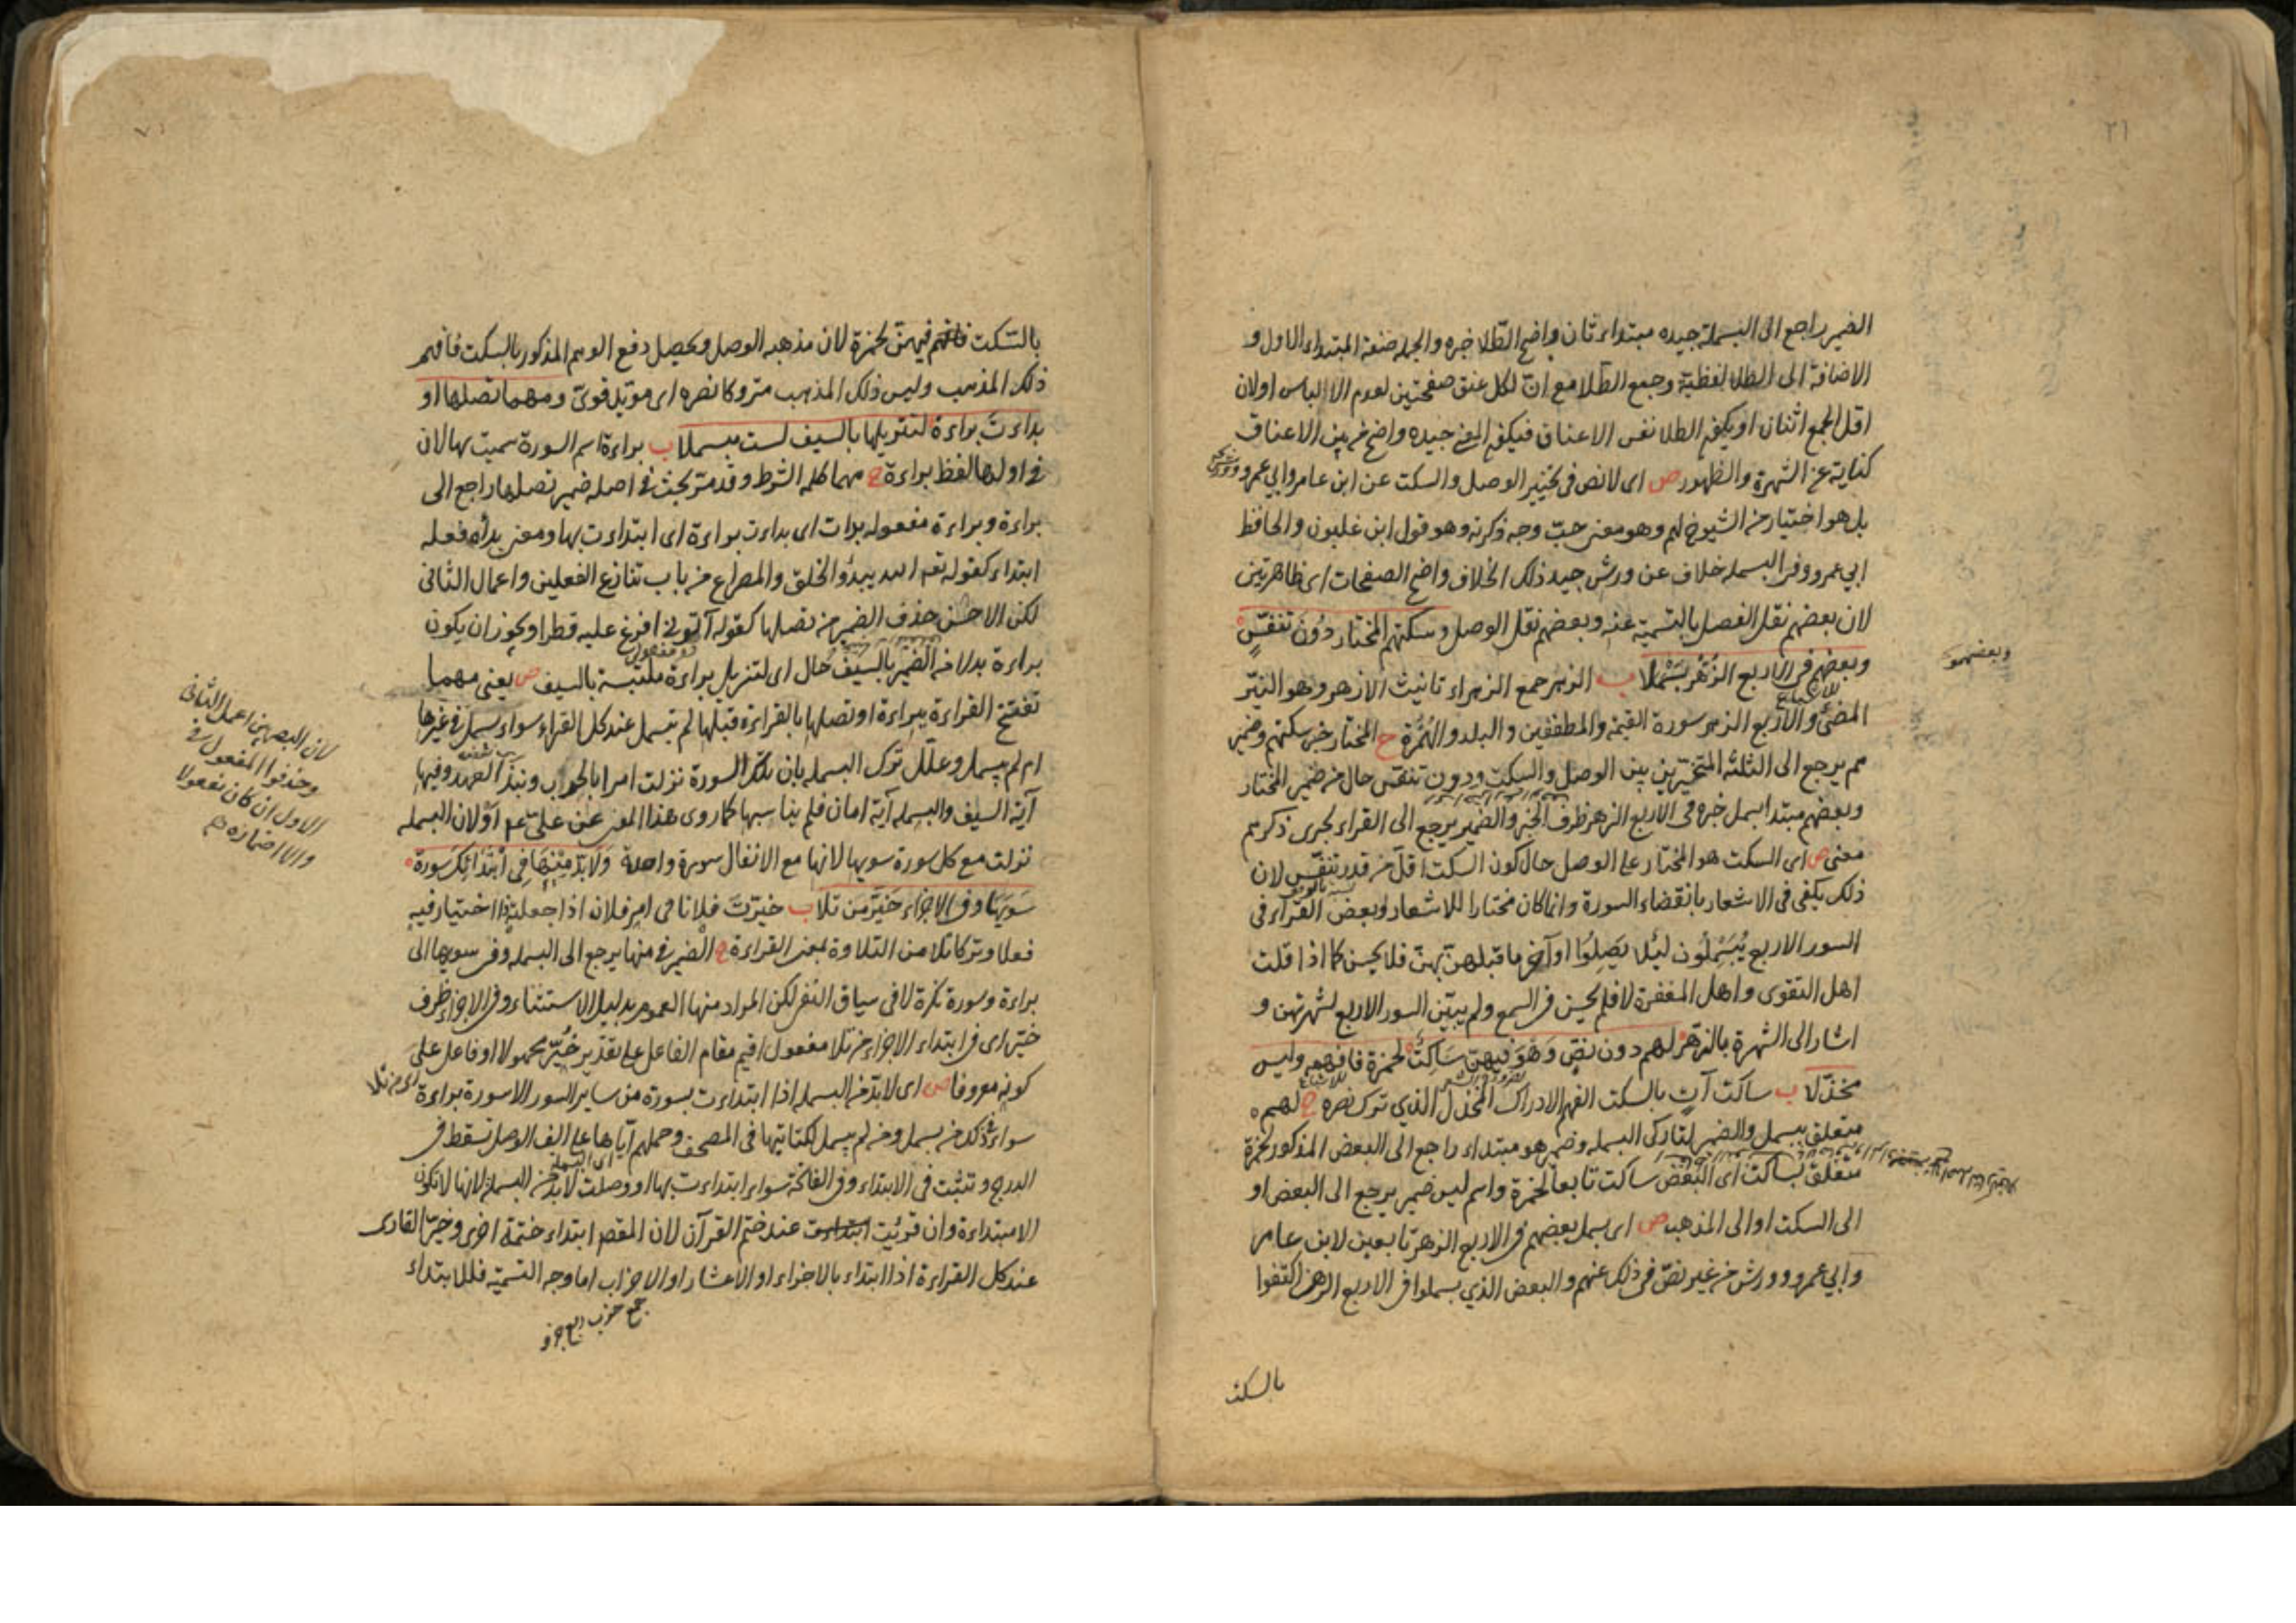 ٢١
الضمير راجع الى البسملة جيده مبتداء ثان واضح الطلا خبره والجملة صفة المبتداء الاول و
الاضافة الى الطلا لفظية وجمع الطلا مع ان لكل عنق صفحتين لعدم الالباس اولان
اقل الجمع اثنان او يكون الطلا نفس الاعناق فيكون المعنى جيده واضح من بين الاعناق
كناية عن الشهرة والظهور ص اى لا نص فى تخيير الوصل والسكت عن ابن عامر وابي عمرو وورش
بل هو اختيار من الشيوخ لهم وهو معنى حب وجه ذكرته وهو قول ابن غلبون والحافظ
ابي عمرو وفى البسملة خلاف عن ورش جيد ذلك الخلاف واضح الصفحات اى ظاهر تبين
لان بعضهم نقل الفصل بالتسمية عنه وبعضهم نقل الوصل وسكتهم المختار دون تنفس
وبعضهم فى الاربع الزهر بسملا ب الزهر جمع الزهراء تانيث الازهر وهو النير
المضئ والاربع الزهر سورة القيمة والمطففين والبلد والهمزة ح المختار خبر سكتهم وضمير
هم يرجع الى الثلثة المتخيرين بين الوصل والسكت ودون تنفس حال من ضمير المختار
وبعضهم مبتدا بسمل خبره فى الاربع الزهر ظرف الخبر والضمير يرجع الى القراء لجرى ذكرهم
معنى ص اى السكت هو المختار على الوصل حال كون السكت اقل من قدر تنفس لان
ذلك يكفى فى الاشعار بانقضاء السورة وانما كان مختارا للاشعار وبعض القراء فى
السور الاربع يبسملون لئلا يصلوا اواخر ما قبلهن بهن فلا يحسن كما اذا قلت
اهل التقوى واهل المغفرة لا فلم يحسن فى السمع ولم يبين السور الاربع لشهرتهن و
اشار الى الشهرة بالزهر لهم دون نص وهو فيهن ساكت لحمزة فافهمه وليس
مخذلا ب ساكت آت بالسكت الفهم الادراك المخذل الذي ترك نصره ح لهم
متعلق ببسمل والضمير لتاركى البسملة وضمير هو مبتداء راجع الى البعض المذكور لحمزة
متعلق بساكت اى البعض ساكت تابعا لحمزة واسم ليس ضمير يرجع الى البعض او
الى السكت او الى المذهب ص اى بسمل بعضهم فى الاربع الزهر تابعين لابن عامر
وابي عمرو وورش من غير نص فى ذلك عنهم والبعض الذي بسملوا فى الاربع الزهر اكتفوا
بالسكت
وبعضهم
بالسكت فيهن لحمزة لان مذهبه الوصل ويحصل دفع الوهم المذكور بالسكت فافهم
ذلك المذهب وليس ذلك المذهب متروكا نصره اى مؤيد قوى ومهما تصلها او
بدات براءة لتنزيلها بالسيف لست مبسملا ب براءة اسم السورة سميت بها لان
فى اولها لفظ براءة ح مهما كلمة الشرط وقد مر بحث فى اصله ضمير تصلها راجع الى
براءة وبراءة مفعولة بدات اى بدات براءة اى ابتداءت بها ومعنى بدأه فعله
ابتداء كقوله تعه الله يبدؤ الخلق والمصراع من باب تنازع الفعلين واعمال الثانى
لكن الاحسن حذف الضمير من تصلها كقوله آتونى افرغ عليه قطرا ويجوز ان يكون
براءة بدلا من الضمير بالسيف حال اى لتنزيل براءة ملتبسة بالسيف ص يعنى مهما
تفتتح القراءة ببراءة او تصلها بالقراءة قبلها لم تبسمل عند كل القراء سواء بسمل فى غيرها
ام لم يبسمل وعلل ترك البسملة بان تلك السورة نزلت امرا بالحراب ونبذ العهد وفيها
آية السيف والبسملة آية امان فلم يناسبها كما روى هذا المعنى عن على عم او لان البسملة
نزلت مع كل سورة سويها لانها مع الانفال سورة واحدة ولا بد منها فى ابتدائك سورة
سويها وفى الاجزاء خير من تلا ب خيرت فلانا فى امر فلان اذا جعلت ذا اختيار فيه
فعلا وتركا تلا من التلاوة بمعنى القراءة ح الضمير فى منها يرجع الى البسملة وفى سويها الى
براءة وسورة نكرة لا فى سياق النفى لكن المراد منها العموم بدليل الاستثناء وفى الاجزاء ظرف
خير اى فى ابتداء الاجزاء من تلا مفعول اقيم مقام الفاعل على تقدير خير مجهولا او فاعل على
كونه معروفا ص اى لا بد من البسملة اذا ابتداءت بسورة من ساير السور الا سورة براءة
سواء فى ذلك من بسمل ومن لم يبسمل لكتابتها فى المصحف وحملهم اياها على الف الوصل تسقط فى
الدرج وتثبت فى الابتداء وفى الفاتحة سواء ابتداءت بها او وصلت لا بد من البسملة لانها لا تكون
الا مبتداءة وان قرئت عند ختم القرآن لان المقصد ابتداء ختمة اخرى وخير القارى
عند كل القراءة اذا ابتداء بالاجزاء او الاعشار او الاحزاب اما وجه التسمية فللابتداء
جمع حزب ربع جزو
لان البصريين اعمل الثانى
وحذفوا المفعول فى
الاول ان كان مفعولا
والا اضماره